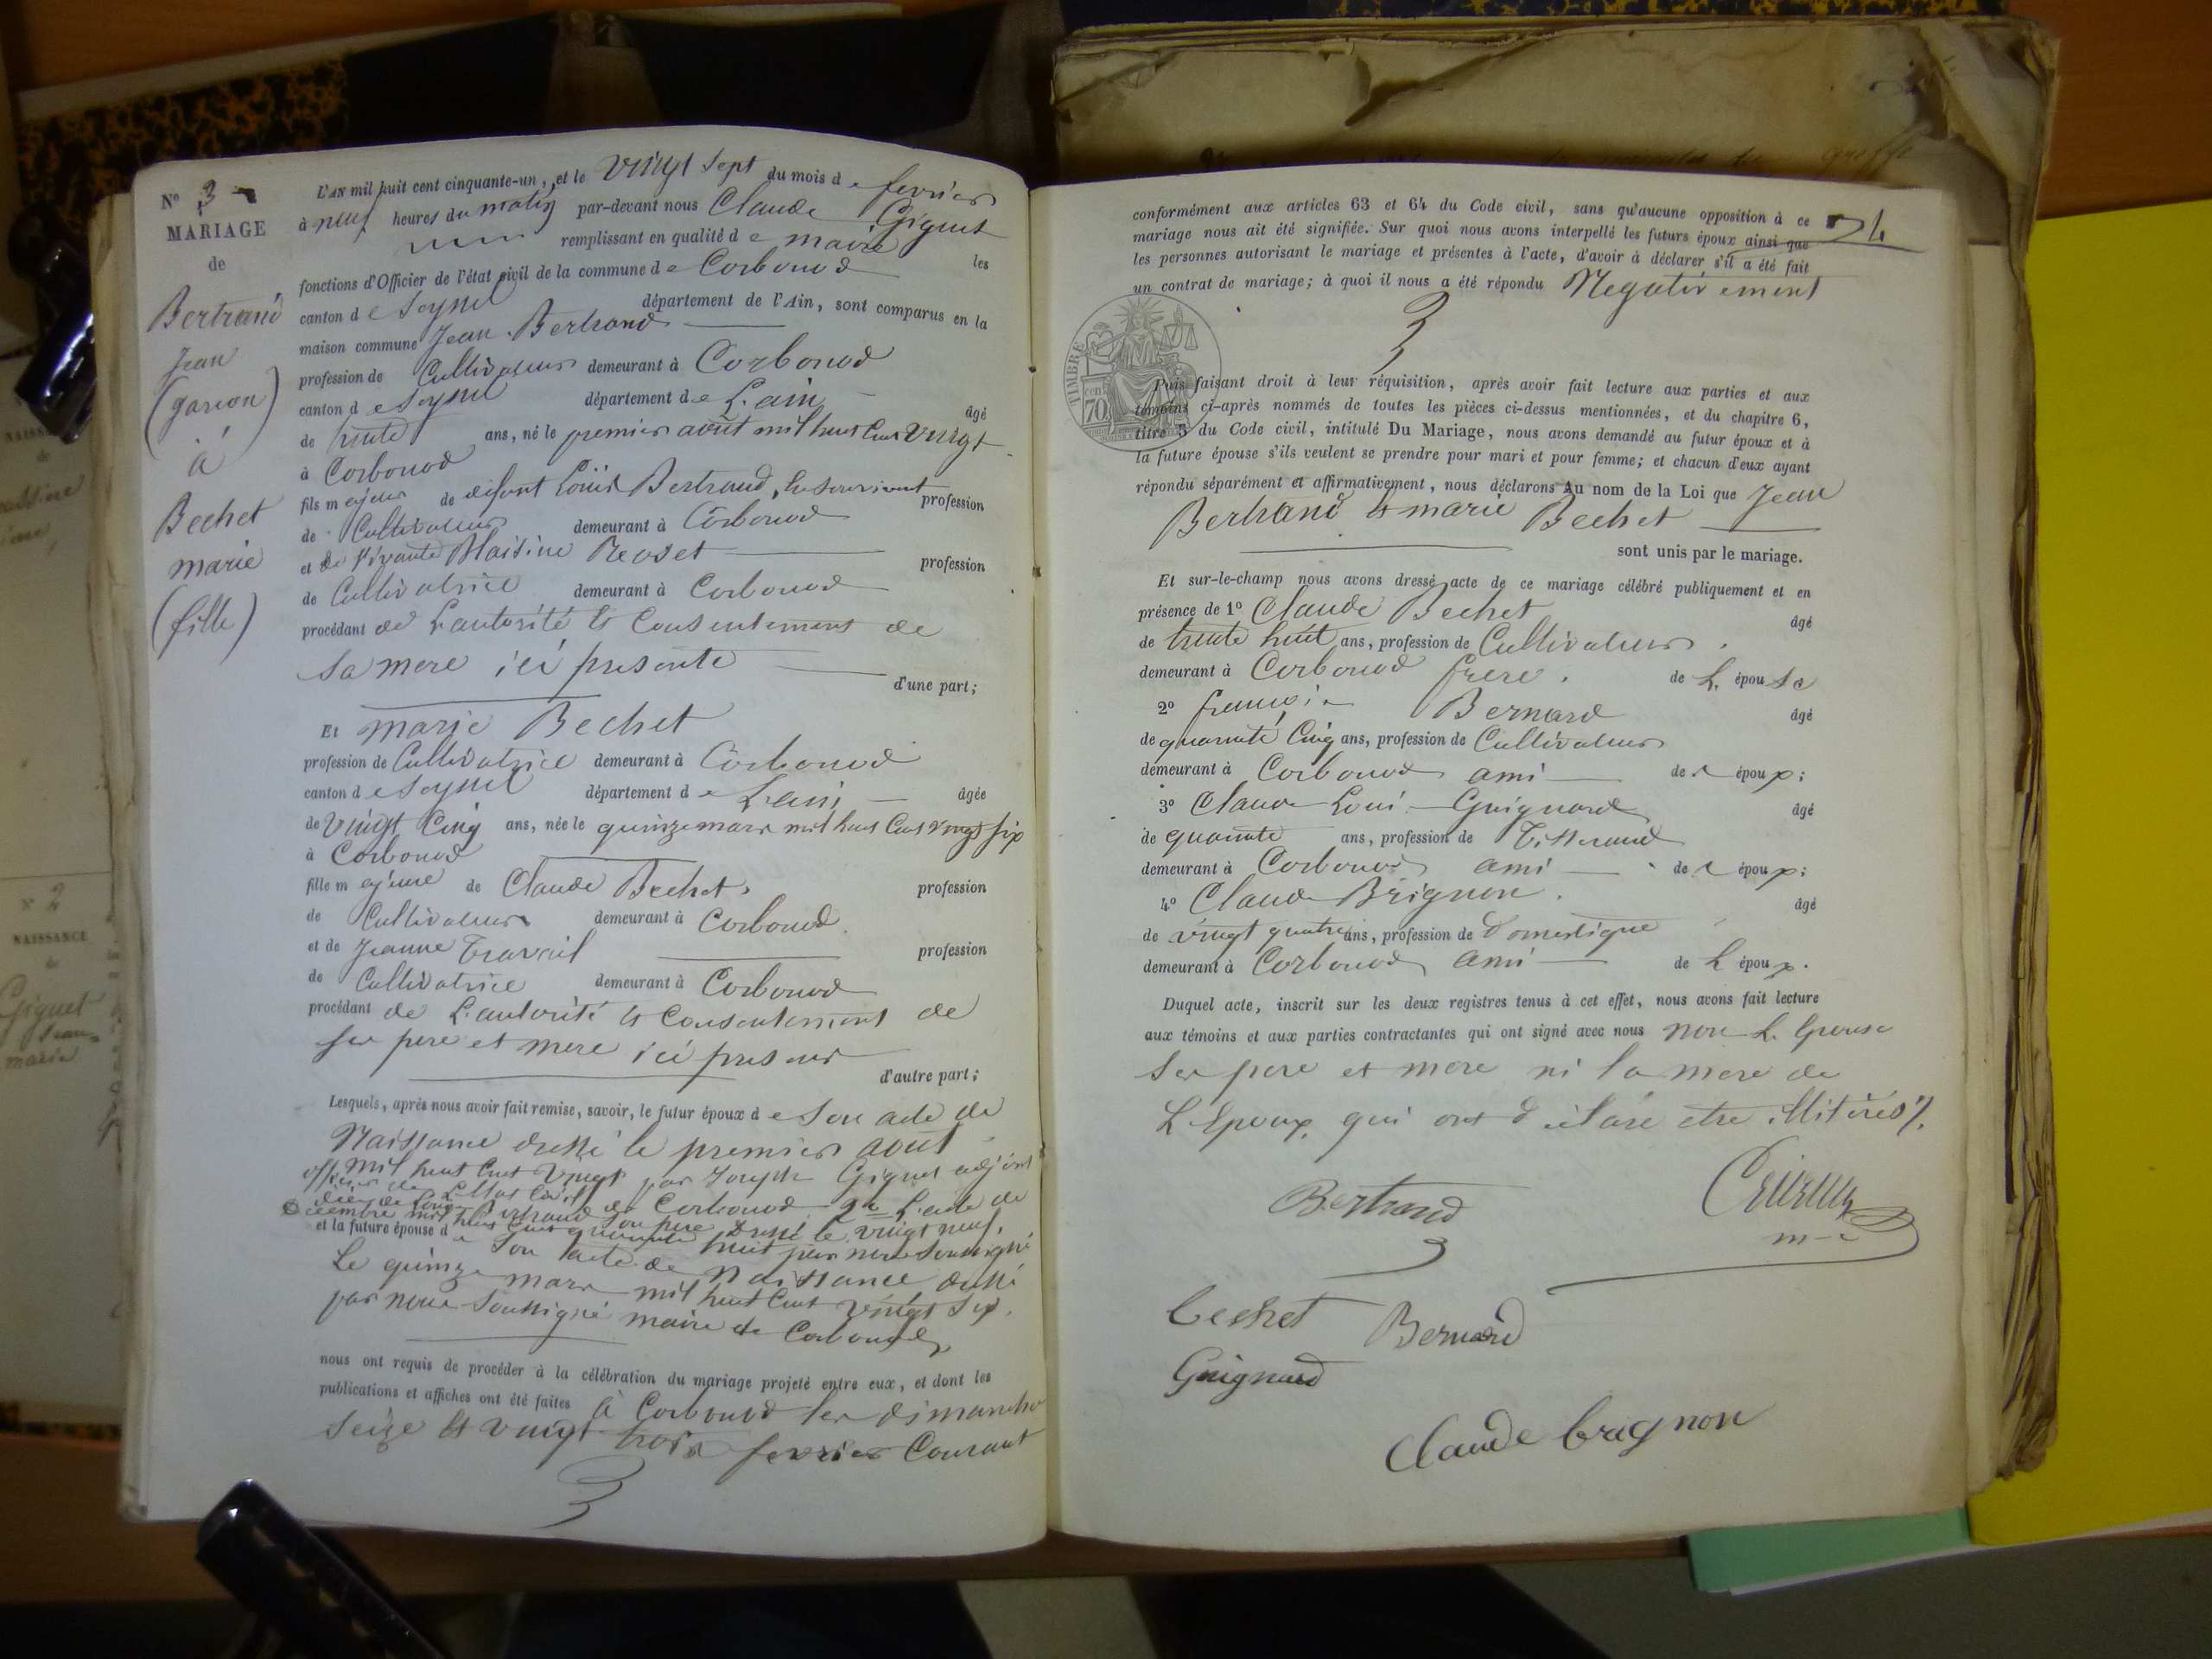 Nº 3
MARIAGE
de
Bertrand
Jean
(garcon)
à
Bechet
marie
(fille)
L'AN mil huit cent cinquante-un, et le vingt sept du mois de fevrier
à neuf heures du matin par-devant nous Claude Giguet
remplissant en qualité de maire les
fonctions d'Officier de l'état civil de la commune de Corbonod
canton de Seyssel département de l'Ain, sont comparus en la
maison commune Jean Bertrand
profession de Cultivateur demeurant à Corbonod
canton de Seyssel département de L'ain âgé
de trente ans, né le premier août mil huit Cent vingt
à Corbonod
fils majeur de défunt Louis Bertrand, profession
de Cultivateur demeurant à Corbonod
et de vivante Blaisine profession
de Cultivatrice demeurant à Corbonod
procédant de L'autorité et Consentement de
sa mere ici presente
d'une part;
Et marie Bechet
profession de Cultivatrice demeurant à Corbonod
canton de Seyssel département de L'ain âgée
de vingt Cinq ans, née le quinze mars mil huit Cent vingt six
à Corbonod
fille majeure de Claude Bechet, profession
de Cultivateur demeurant à Corbonod
et de Jeanne Travail profession
de Cultivatrice demeurant à Corbonod
procédant de L'autorité et Consentement de
ses pere et mere ici presens
d'autre part;
Lesquels, après nous avoir fait remise, savoir, le futur époux de Son acte de
Naissance dressé le premier août
mil huit Cent vingt par Joseph Giguet adjoint
officier de L'etat Civil de Corbonod. 2º L'acte de
décès de Louis Bertrand son pere Dressé le vingt neuf
décembre mil huit Cent quarante huit par nous soussigné
et la future épouse de Son acte de Naissance dressé
Le quinze mars mil huit Cent vingt six
par nous Soussigné maire de Corbonod
nous ont requis de procéder à la célébration du mariage projeté entre eux, et dont les
publications et affiches ont été faites à Corbonod les dimanches
seize et vingt trois fevrier Courant
conformément aux articles 63 et 64 du Code civil, sans qu'aucune opposition à ce
mariage nous ait été signifiée. Sur quoi nous avons interpellé les futurs époux ainsi que
les personnes autorisant le mariage et présentes à l'acte, d'avoir à déclarer s'il a été fait
un contrat de mariage; à quoi il nous a été répondu Negativement
TIMBRE
70 cent
Puis faisant droit à leur réquisition, après avoir fait lecture aux parties et aux
témoins ci-après nommés de toutes les pièces ci-dessus mentionnées, et du chapitre 6,
titre 5 du Code civil, intitulé Du Mariage, nous avons demandé au futur époux et à
la future épouse s'ils veulent se prendre pour mari et pour femme; et chacun d'eux ayant
répondu séparément et affirmativement, nous déclarons Au nom de la Loi que Jean
Bertrand et marie Bechet
sont unis par le mariage.
Et sur-le-champ nous avons dressé acte de ce mariage célébré publiquement et en
présence de 1º Claude Bechet âgé
de trente huit ans, profession de Cultivateur
demeurant à Corbonod frere de L'épouse
2º françois Bernard âgé
de quarante Cinq ans, profession de Cultivateur
demeurant à Corbonod ami de l'époux;
3º Claude Louis Guignard âgé
de quarante ans, profession de Tisserand
demeurant à Corbonod ami de l'époux;
4º Claude Brignon âgé
de vingt quatre ans, profession de Domestique
demeurant à Corbonod ami de L'époux.
Duquel acte, inscrit sur les deux registres tenus à cet effet, nous avons fait lecture
aux témoins et aux parties contractantes qui ont signé avec nous non L'Epouse
Ses pere et mere ni la mere de
L'Epoux, qui ont déclaré etre illitérés
Bertrand
bechet
Bernard
Guignard
Claude brignon
Nº 2
NAISSANCE
de
Giguet
Jean
marie